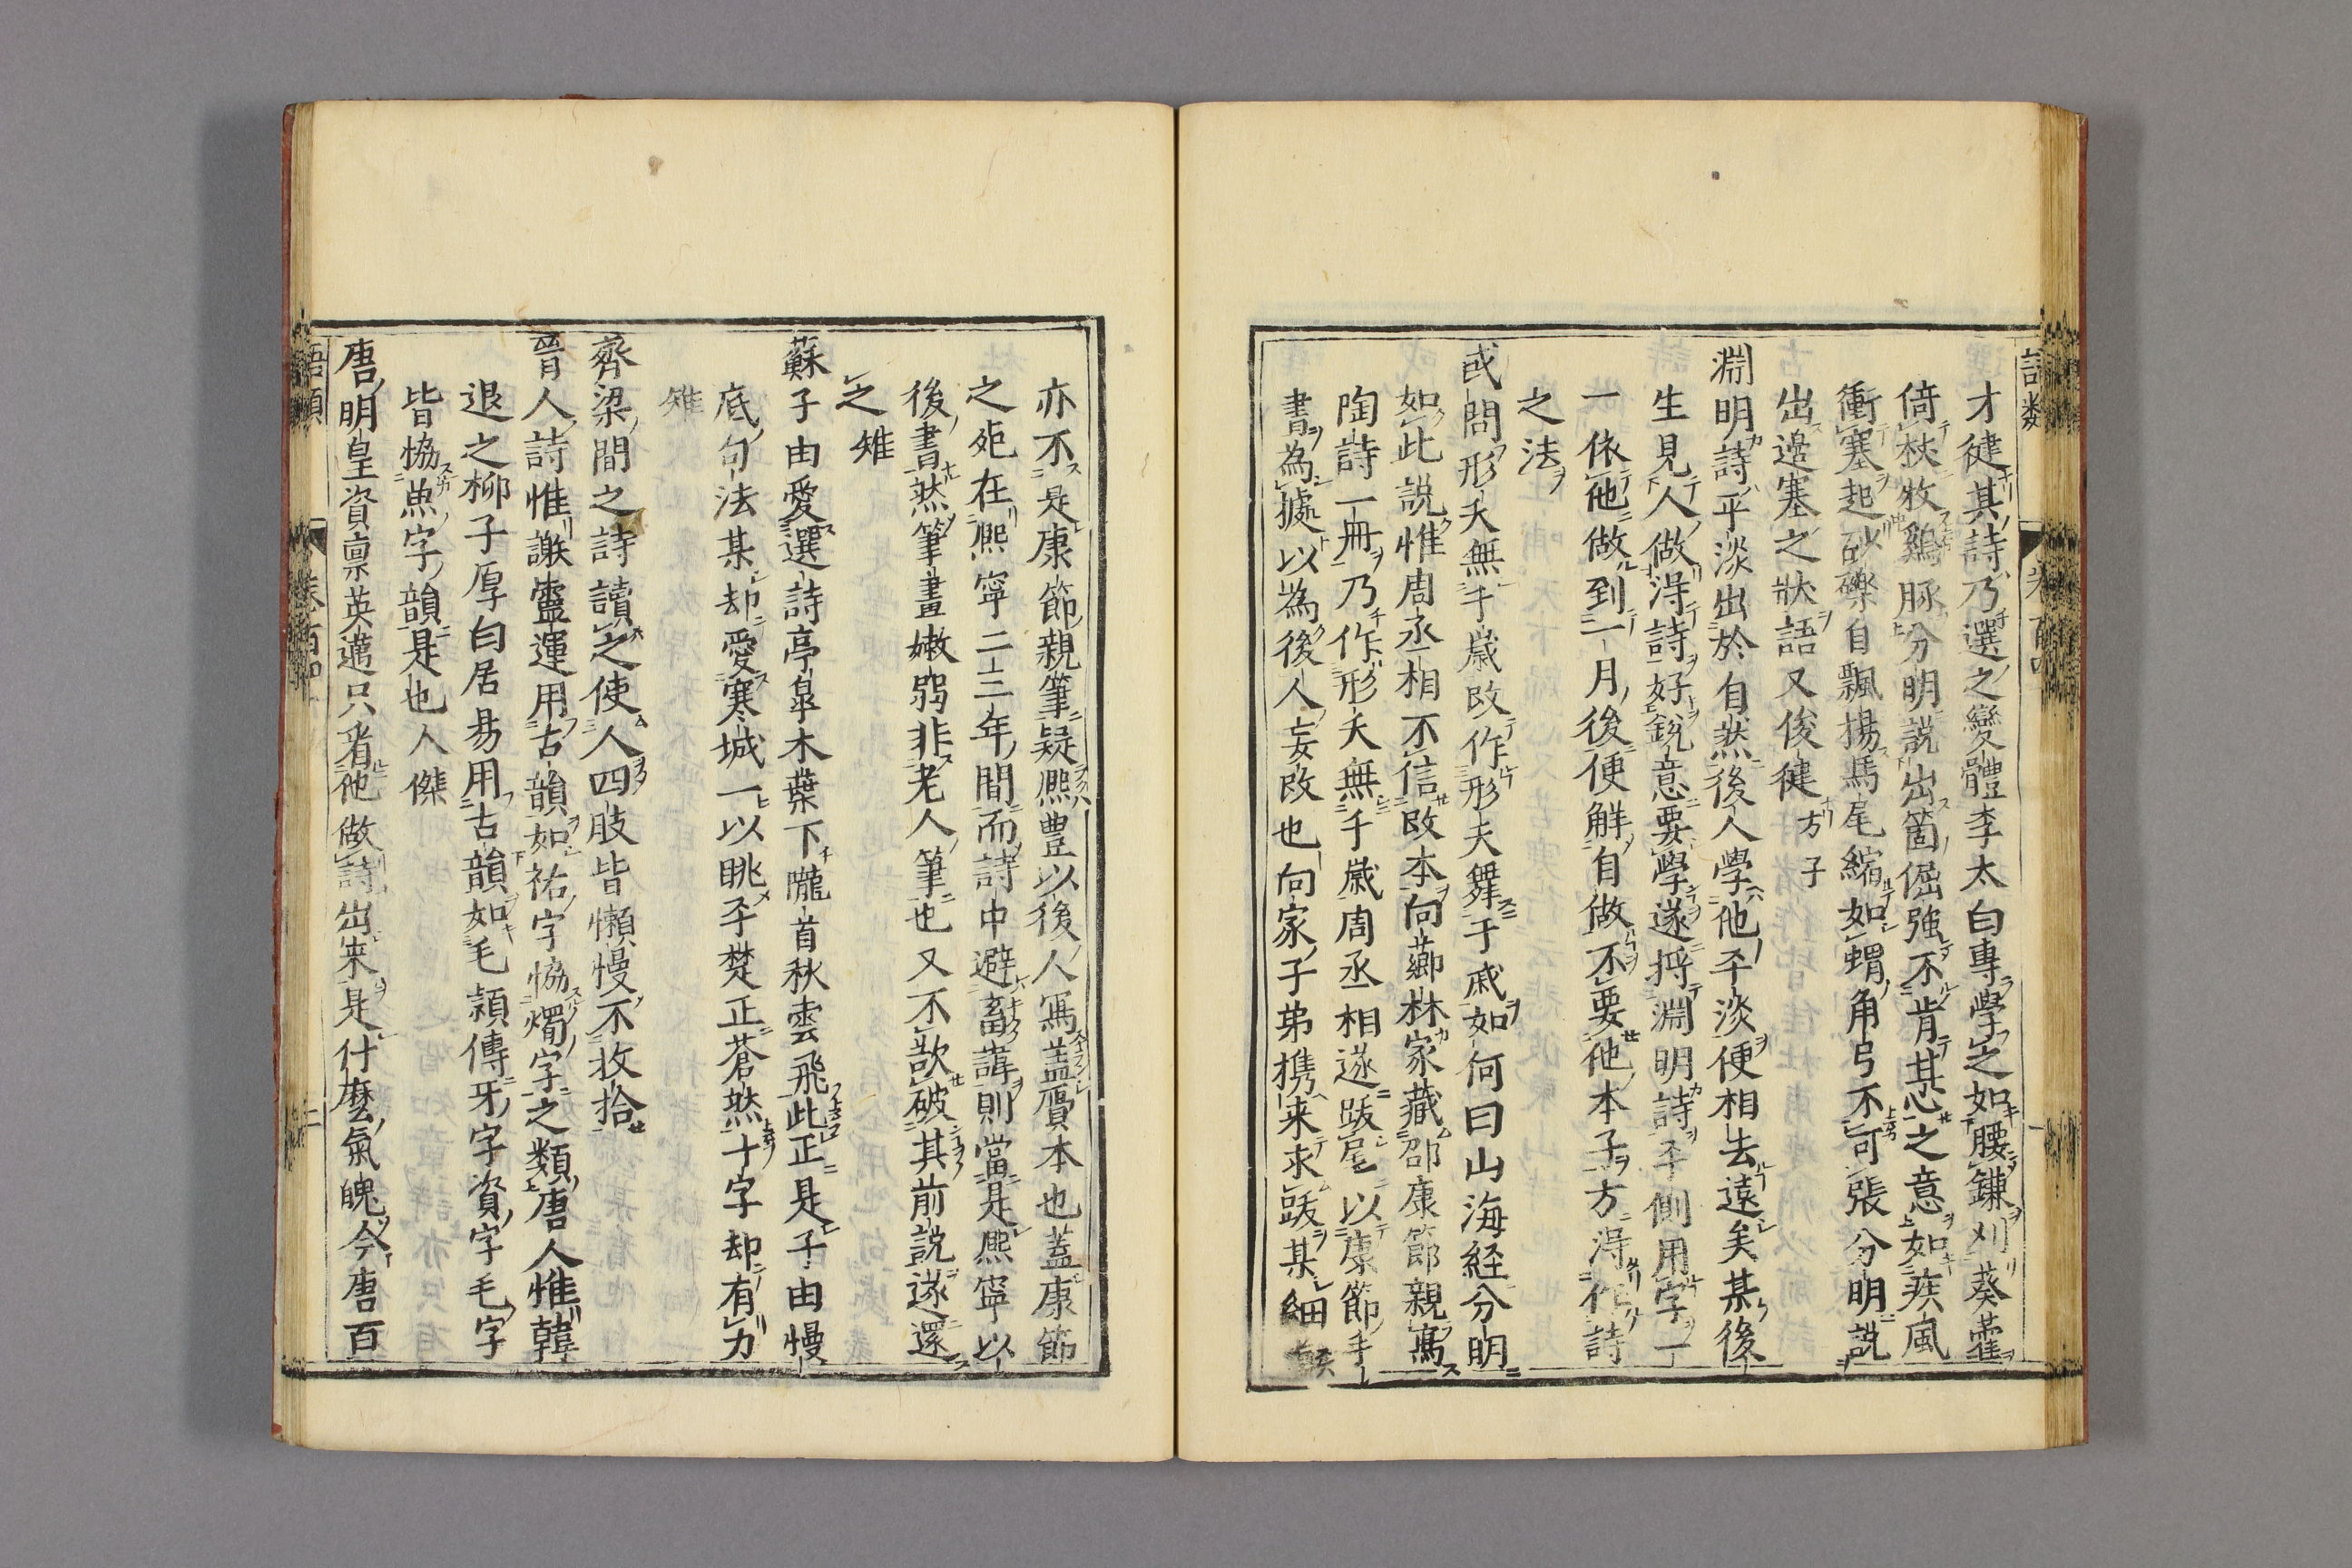 才健其詩乃選之變體李太白專學之如腰鎌刈葵藿
倚杖牧鷄豚分明說出箇倔強不肯甚心之意如疾風
衝塞起砂礫自飄揚馬尾縮如蝟角弓不可張分明說
出邊塞之狀語又俊健方子
淵明詩平淡出於自然後人學他平淡便相去遠矣某後
生見人做得詩好銳意要學遂將淵明詩平側用字一
一依他做到一月後便解自做不要他本子方得作詩
之法
或問形夭無千歲改作形夭舞干戚如何曰山海経分明
如此說惟周丞相不信改本向薌林家藏邵康節親寫
陶詩一冊乃作形夭無千歲周丞相遂跋尾以康節手
書為據以為後人妄改也向家子弟携来求跋某細
亦不是康節親筆疑熈豊以後人寫盖贋本也蓋康節
之死在熈寧二三年間而詩中避畜諱則當是熈寧以
後書然筆畫嫩弱非老人筆也又不欲破其前說遂還
之雉
蘇子由愛選詩亭皐木葉下隴首秋雲飛此正是子由慢
底句法某却愛寒城一以眺平楚正蒼然十字却有力
雉
齊梁間之詩讀之使人四肢皆懶慢不收拾
晉人詩惟謝靈運用古韻如祐字協燭字之類唐人惟韓
退之柳子厚白居易用古韻如毛頴傳牙字資字毛字
皆協魚字韻是也人傑
唐明皇資稟英邁只看他做詩出来是什麽氣魄今唐百
語類 卷百四十